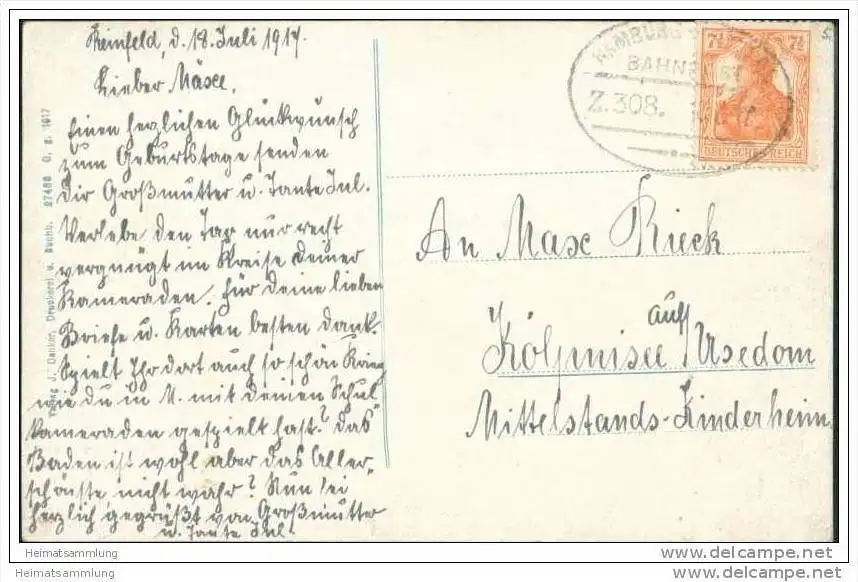 Reinfeld, d. 18. Juli 1917.
Lieber Mäxe.
Einen herzlichen Glückwunsch
zum Geburtstage senden
Dir Großmutter u. Tante Jul.
Verlebe den Tag nur recht
vergnügt im Kreise deiner
Kameraden. Für deine lieben
Briefe u. Karten besten Dank.
Spielt Ihr dort auch so schön Krieg
wie du in A. mit deinen Schul
kameraden gespielt hast? Das
Baden ist wohl aber das Aller-
schönste nicht wahr? Nun sei
herzlich gegrüßt von Großmutter
u. Tante Jul.
Verlag J. Danker, Druckerei u. Buchb. 27488 G. g. 1917
HAMBURG
BAHNPOST
Z.308.
7½ 7½
DEUTSCHES REICH
An Max Rieck
Kölpinsee auf Usedom
Mittelstands-Kinderheim
Heimatsammlung
Heimatsammlung
www.delcampe.net
www.delcampe.net